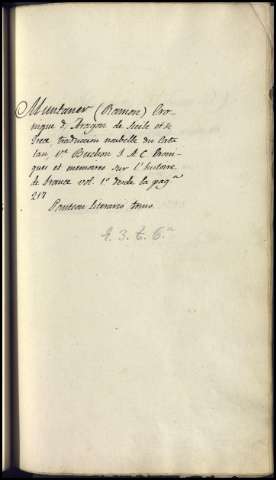 Muntaner (Ramon) Cro-
nique d, Aragon de Sicile et de
Grece, traduccion nouvelle du Cata
lan, Vᵉ Buchon J. A. C. Croni-
ques et memoires sur l'histoire
de France vol. 1º desde la pagª
217
Panteon literario tomo
E. 3. t. 6.ª